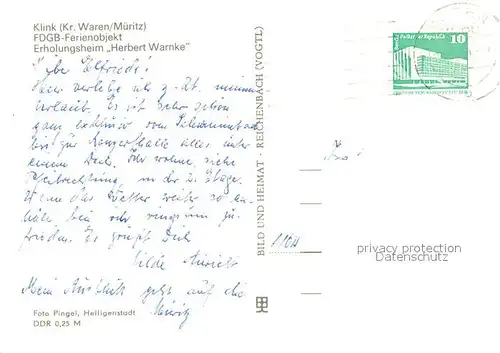 Klink (Kr. Waren/Müritz)
FDGB-Ferienobjekt
Erholungsheim „Herbert Warnke"
Liebe Elfriede!
Hier verlebe ich z. Zt. meinen
Urlaub. Es ist sehr schön
ganz exklusiv vom Schwimmbad
bis zur Kongresshalle alles unter
einem Dach. Wir wohnen siehe
Pfeilrichtung, in der 2. Etage.
Wenn das Wetter weiter so
zufrieden. Es grüßt Dich
Hilde
Mein Ausblick geht auf die
Müritz
Foto Pingel, Heiligenstadt
DDR 0,25 M
BILD UND HEIMAT · REICHENBACH (VOGTL)
Palast der Republik
10
privacy protection
Datenschutz